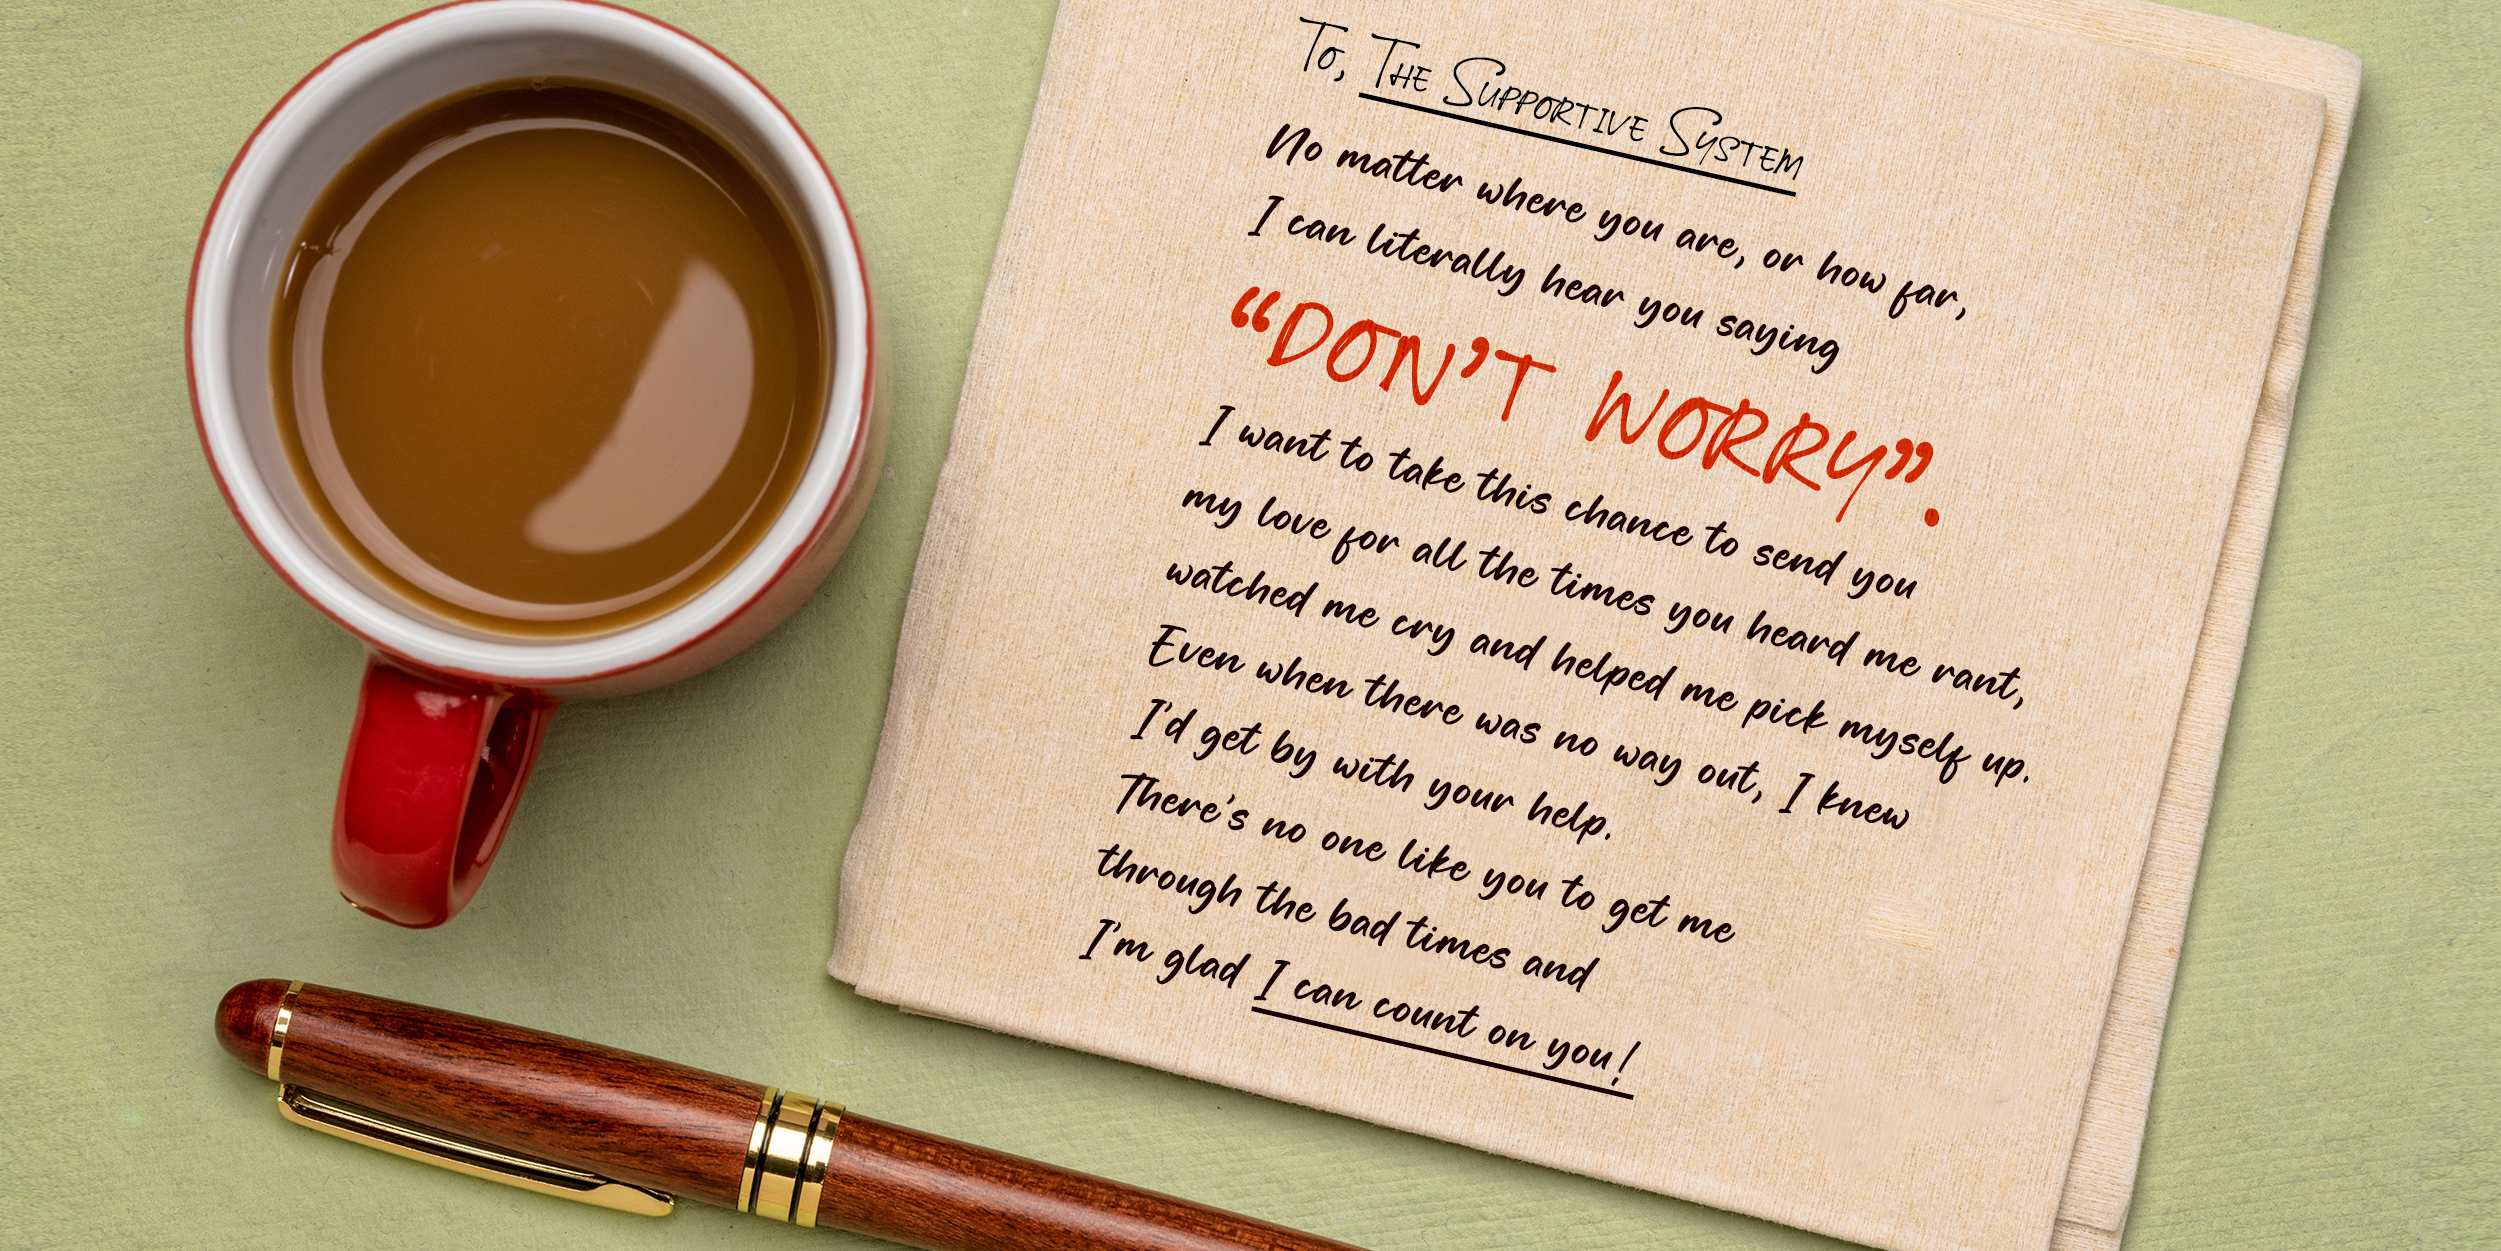 To, The Supportive System
No matter where you are, or how far,
I can literally hear you saying
“DON’T WORRY”.
I want to take this chance to send you
my love for all the times you heard me rant,
watched me cry and helped me pick myself up.
Even when there was no way out, I knew
I’d get by with your help.
There’s no one like you to get me
through the bad times and
I’m glad I can count on you!